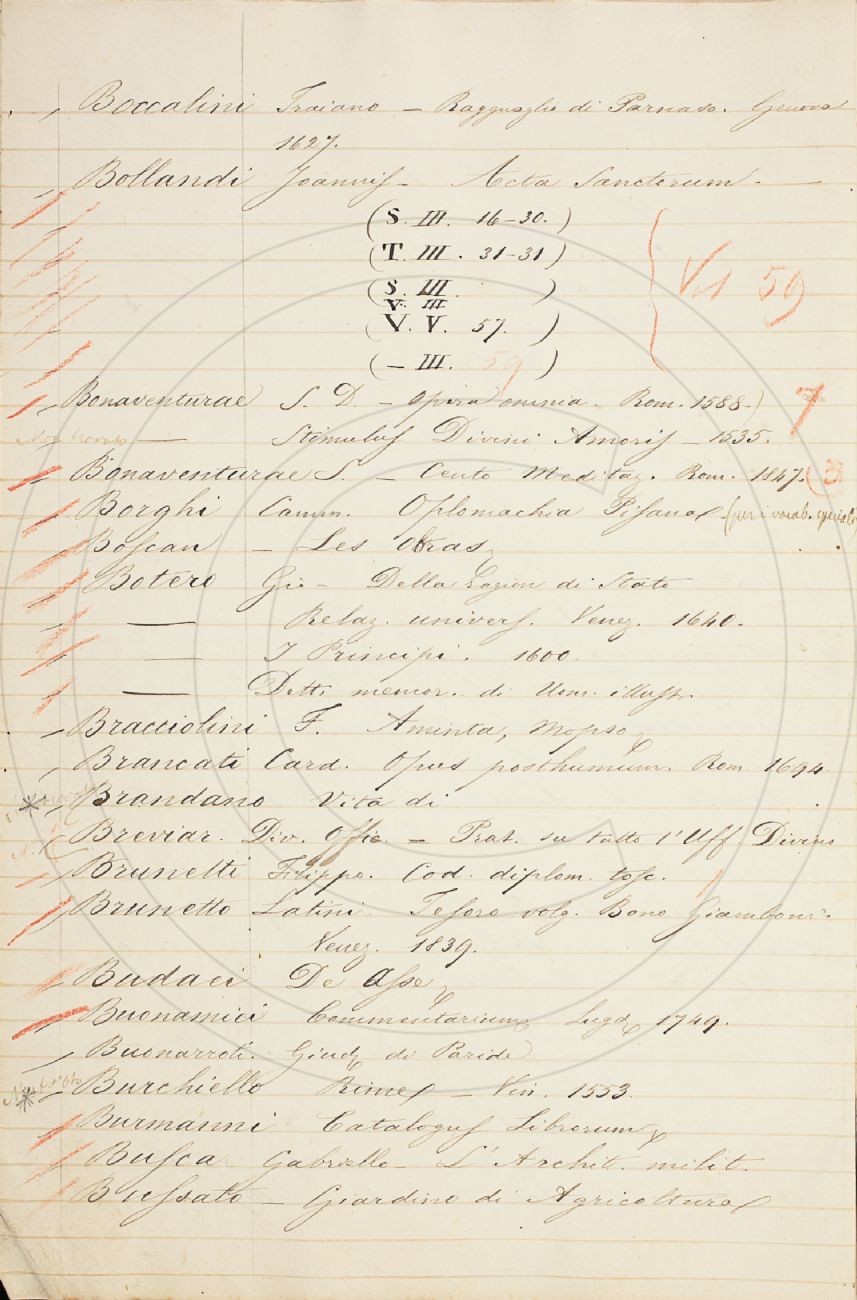 Boccalini Traiano – Ragguaglio di Parnaso. Genova
1627.
Bollandi Joannis – Acta Sanctorum. —
(S. III. 16–30.)
(T. III. 31–31)
(S. III. )
V. III.
(V. V. 57. )
(– III. 59 )
Vol 59
Bonaventurae S. D. – Opera omnia. Rom. 1588–)
Non trovato — Stimulus Divini Amoris – 1535.
Bonaventurae S. – Cento Meditaz. Rom. 1847. (3
Borghi Camm. Oplomachia Pisana – (per i vocab. speciali
Boscan – Les Obras
Botero Gio – Della Ragion di Stato
— Relaz. univers. Venez. 1640.
— I Principi. 1600.
— Detti memor. di Uom. illustr.
Bracciolini F. Aminta, Mopso
Brancati Card. Opus posthumum. Rom. 1694
* Brandano Vita di .
Breviar. Div. Offic. – Prat. su tutto l'Uff Divino
Brunetti Filippo. Cod. diplom. tosc.
Brunetto Latini. Tesoro volg. Bono Giamboni.
Venez. 1839.
Budaei De Asse
Buonamici Commentarium Lugd 1749.
Buonarroti. Giud. di Paride
* Burchiello Rime – Vin. 1553.
Burmanni Catalogus Librorum
Busca Gabriello – L'Archit. milit.
Bussato – Giardino di Agricoltura